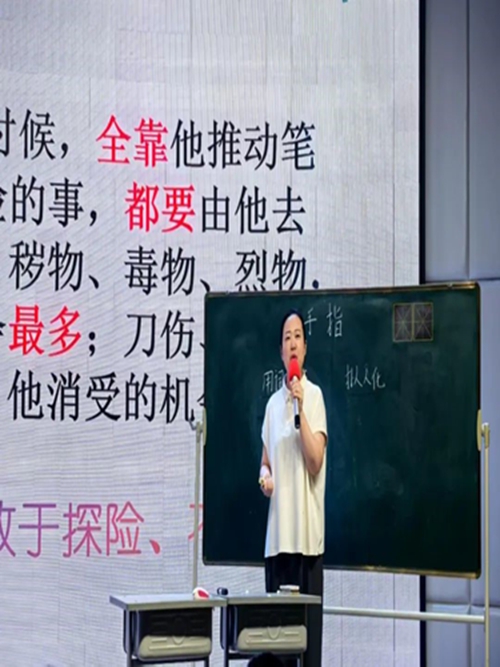 时候，全靠他推动笔
的事，都要由他去
秽物、毒物、烈物，
最多；刀伤、
他消受的机会
敢于探险、
手指
用词
拟人化